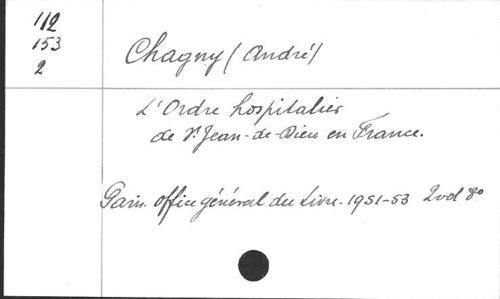 112
153
2
Chagny (André)
L'Ordre hospitalier
de St Jean-de-Dieu en France.
Paris. Office général du Livre. 1951-53 2 vol 8º